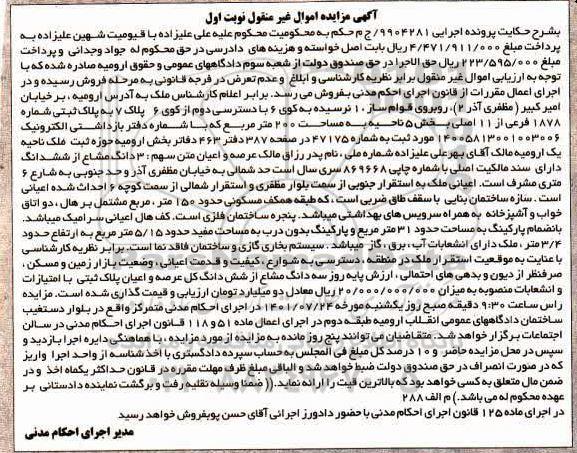 آگهی مزایده اموال غیر منقول نوبت اول
بشرح حکایت پرونده اجرایی 9904281/ج م حکم به محکومیت محکوم علیه علی علیزاده با قیومیت شهین علیزاده به
پرداخت مبلغ 4/471/911/000 ریال بابت اصل خواسته و هزینه های دادرسی در حق محکوم له جواد وجدانی و پرداخت
مبلغ 223/595/000 ریال حق الاجرا در حق صندوق دولت از شعبه سوم دادگاههای عمومی و حقوق ارومیه صادره شده که با
توجه به ارزیابی اموال غیر منقول برابر نظریه کارشناسی و ابلاغ و عدم تعرض در فرجه قانونی به مرحله فروش رسیده و در
اجرای اعمال مقررات از قانون اجرای احکام مدنی بفروش می رسد. برابر اعلام کارشناس ملک به آدرس ارومیه ، بر خیابان
امیر کبیر ( مظفری آذر 2)، روبروی قوام ساز 10 نرسیده به کوی 6 با دسترسی دوم از کوی 6 پلاک 7 به پلاک ثبتی شماره
1878 فرعی از 11 اصلی بخش 5 ناحیه به مساحت 200 متر مربع که با شماره دفتر بازداشتی الکترونیک
140005813001003006 مورد ثبت به شماره 47175 در صفحه 387 دفتر 462 دفاتر بخش ارومیه حوزه ثبت ملک ناحیه
یک ارومیه مالک آقای بهرعلی علیزاده شماره ملی ، نام پدر رزاق مالک عرصه و اعیان متن سهم : 3 دانگ مشاع از ششدانگ
دارای سند مالکیت اصلی با شماره چاپی 869668 سری سال است حد شمالی به خیابان مظفری آذر و حد جنوبی به شارع 6
متری مشرف است. اعیانی ملک به استقرار جنوبی از سمت بلوار مظفری و استقرار شمالی از سمت کوچه 6 احداث شده اعیانی
است . سازه ساختمان بنایی با سقف طاق ضربی است ، که طبقه همکف مسکونی حدود 150 متر ، مربع مشتمل بر هال ، دو اتاق
خواب و آشپزخانه به همراه سرویس های بهداشتی میباشد. پنجره ساختمان فلزی است. کف هال اعیانی سرامیک میباشد.
بانضمام پارکینگ به مساحت حدود 31 متر مربع و پارکینگ بدون درب به مساحت مفید حدود 5/15 متر مربع به ارتفاع حدود
3/4 متر ، ملک دارای انشعابات آب ، برق ، گاز میباشد . سیستم بخاری گازی و ساختمان فاقد نما است. برابر نظریه کارشناسی
با عنایت به موقعیت استقرار ملک در منطقه ، دسترسی به شوارع ، کیفیت و قدمت اعیانی ، وضعیت بازار زمین و مسکن ،
صرفنظر از دیون و بدهی های احتمالی ، ارزش پایه روز سه دانگ مشاع از شش دانگ کل عرصه و اعیان پلاک ثبتی با امتیازات
و انشعابات منصوبه به میزان 20/000/000/000 ریال معادل دو میلیارد تومان ارزیابی و قیمت گذاری شده است. مزایده
راس ساعت 9:30 دقیقه صبح روز یکشنبه مورخه 1401/07/24 در اجرای احکام مدنی متمرکز واقع در بلوار دستغیب
ساختمان دادگاههای عمومی انقلاب ارومیه طبقه دوم در اجرای اعمال ماده 51 و 118 قانون اجرای احکام مدنی در سالن
اجتماعات برگزار خواهد شد. متقاضیان می توانند پنج روز مانده به مزایده از مورد مزایده با هماهنگی دایره اجرا بازدید و
سپس در محل مزایده حاضر و 10 درصد کل مبلغ فی المجلس به حساب سپرده دادگستری با اخذ شناسه از واحد اجرا واریز
که در صورت انصراف در حق صندوق دولت ضبط خواهد شد و الباقی مبلغ ظرف مهلت مقرره در قانون حداکثر یکماه اخذ و در
ضمن مال متعلق به کسی خواهد بود که بالاترین قیمت را ارائه نماید.(( ضمنا وسیله نقلیه رفت و برگشت نماینده دادستانی بر
عهده محکوم له می باشد.) م الف 288
در اجرای ماده 125 قانون اجرای احکام مدنی با حضور دادورز اجرائی آقای حسن پویفروش خواهد رسید
مدیر اجرای احکام مدنی